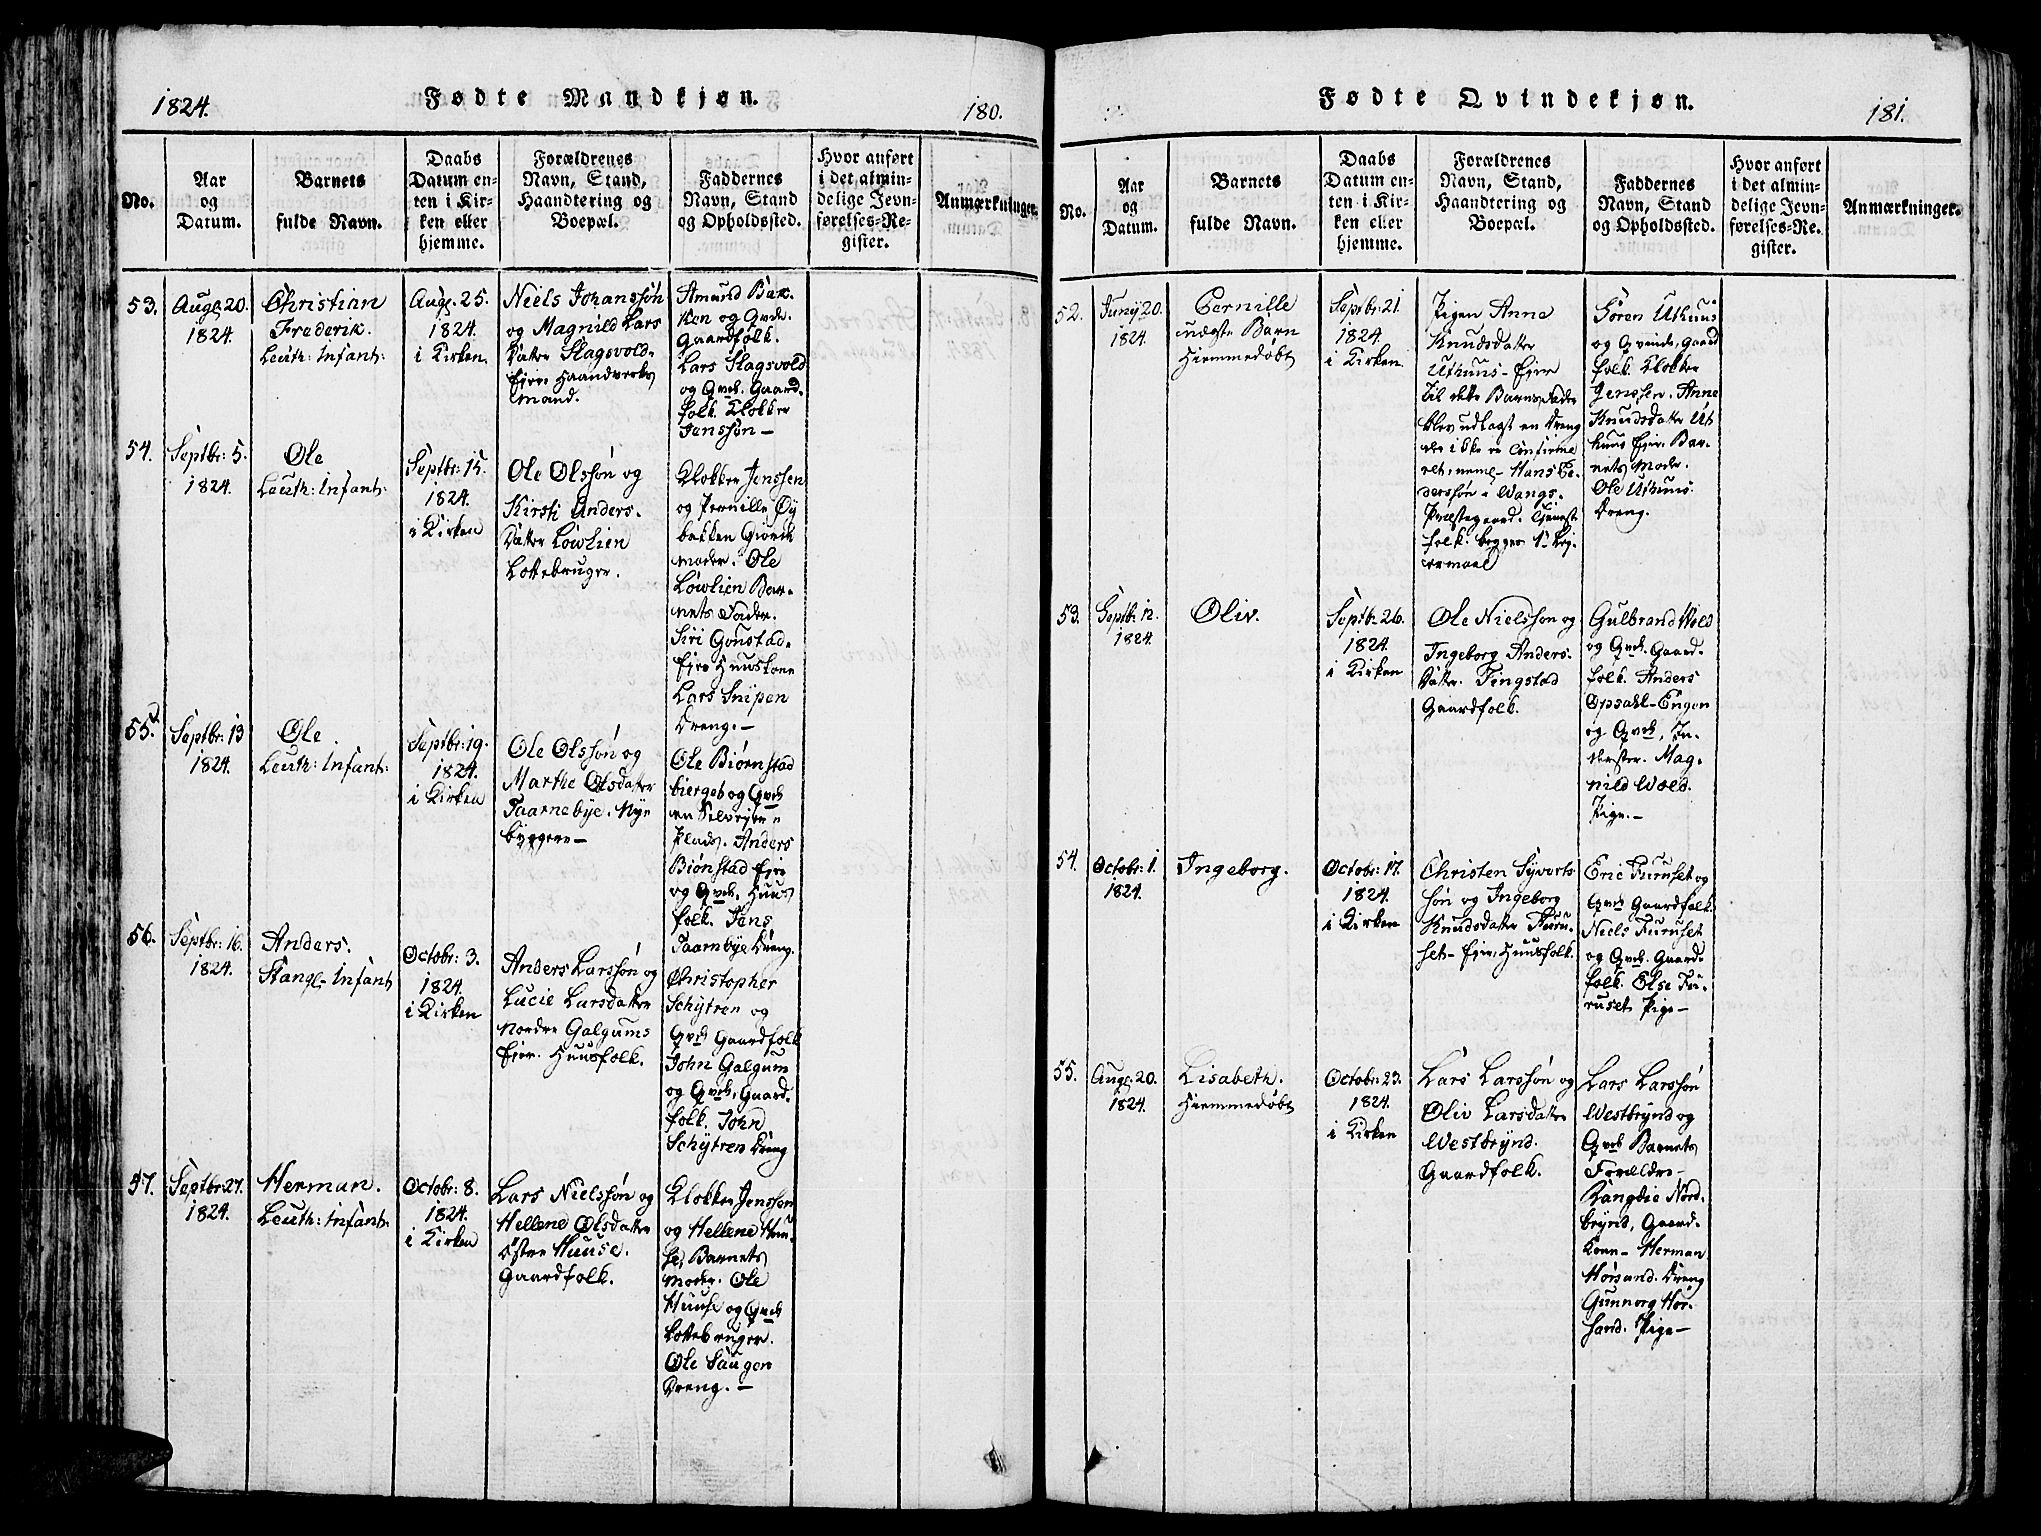 1824.
Fødte Mandkjøn.
180.
No.
Aar
og
Datum.
Barnets
fulde Navn.
Daabs
Datum en-
ten i Kir-
ken eller
hjemme.
Forældrenes
Navn, Stand,
Haandtering og
Boepæl.
Faddernes
Navn, Stand
og Opholdssted.
Hvor anført
i det almin-
delige Jevn-
førelses-Re-
gister.
Anmærkninger.
53.
Aug. 20.
1824.
Christian
Frederik.
Leuth: Infant:
Aug. 25.
1824.
i Kirken
Niels Johanssøn
og Magnild Lars
Datter Slagsvold-
Ejer Haandverks
Mand.
Amund Bak-
ken og Qvde.
Gaardfolk.
Lars Slagsvold
og Qvde. Gaard-
folk. Klokker
Jenssøn —
54.
Septbr: 5.
1824.
Ole
Leuth: Infant:
Septbr: 15.
1824.
i Kirken
Ole Olssøn og
Kirsti Anders-
Datter Løwlien
Lottebruger.
Klokker Jenssen
og Pernille Øy
bakken Giords
moder. Ole
Løwlien Bar-
nets Fader.
Siri Gonstad-
Ejer Huuskone
Lars Snipen
Dreng. —
55.
Septbr: 13
1824.
Ole.
Leuth: Infant:
Septbr: 19.
1824.
i Kirken
Ole Olssøn og
Marthe Olsdatter
Taarnebye. Nye
byggere —
Ole Biørnstad
bierget og Qvde
en Selvejer
Plads. Anders
Biønstad Ejer
og Qvde. Huus
folk. Jens
Taarnbye Dreng.
56.
Septbr: 16.
1824.
Anders.
Stangl- Infant
Octobr: 3.
1824.
i Kirken
Anders Larssøn og
Lucie Larsdatter
Nordre Galgums
Ejer. Huusfolk.
Christopher
Schytren og
Qvde Gaardfolk
John Galgum
og Qvde, Gaard-
folk. John
Schytren Dreng
57.
Septbr: 27.
1824.
Herman.
Leuth: Infant:
Octobr: 8.
1824.
i Kirken
Lars Nielssøn og
Hellene Olsdatter
Østre Huuse.
Gaardfolk.
Klokker Jenssøn
og Hellene Huu-
se, Barnets
Moder. Ole
Huuse og Qvde
Lottebruger.
Ole Saugen
Dreng. —
Fødte Qvindekjøn.
181.
No.
Aar
og
Datum.
Barnets
fulde Navn.
Daabs
Datum en-
ten i Kir-
ken eller
hjemme.
Forældrenes
Navn, Stand,
Haandtering og
Boepæl.
Faddernes
Navn, Stand
og Opholdssted.
Hvor anført
i det almin-
delige Jevn-
førelses-Re-
gister.
Anmærkninger.
52.
Juny 20.
1824.
Pernille
uægte Barn
Hiemmedøbt
Septbr: 21.
1824.
i Kirken
Pigen Anne
Knudsdatter
Uthuus- Ejer
til dette Barns Fader
blev udlagt en Dreng
der ikke er Confirme
ret, neml- Hans Pe-
derssøn i Wangs-
Præstegaard. Tjeneste
folk. begges 1te Lej-
ermaal
Søren Uthuus
og Qvinde, Gaard
folk. Klokker
Jenssen. Anne
Knudsdatter Ut
huus Ejer. Bar-
nets Moder.
Ole Uthuus.
Dreng.
53.
Septbr: 12.
1824.
Oliv.
Septbr: 26.
1824.
i Kirken
Ole Nielssøn og
Ingeborg Anders-
Datter. Tingstad
Gaardfolk.
Gulbrand Wold
og Qvde. Gaard-
folk. Anders
Opsahl-Engen
og Qvde, In-
derster. Mag-
nild Wold.
Pige. —
54.
Octobr: 1.
1824.
Ingeborg.
Octobr: 17.
1824.
i Kirken
Christen Syverts
søn og Ingeborg
Knudsdatter Furu-
set- Ejer, Huusfolk.
Eric Furuset og
Qvde Gaardfolk.
Niels Furuset
og Qvde. Gaard-
folk. Else Fu-
ruset Pige —
55.
Aug. 20.
1824.
Lisabeth.
Hiemmedøbt
Octobr: 23.
1824.
i Kirken
Lars Larssøn og
Oliv Larsdatter
Westbrynd.
Gaardfolk.
Lars Larssøn
Westbrynd og
Qvde Barnets
Forældre —
Rangdie Nord-
brynd, Gaard-
Kone — Herman
Hørsand. Dreng
Gunnorg Hør-
sand. Pige —